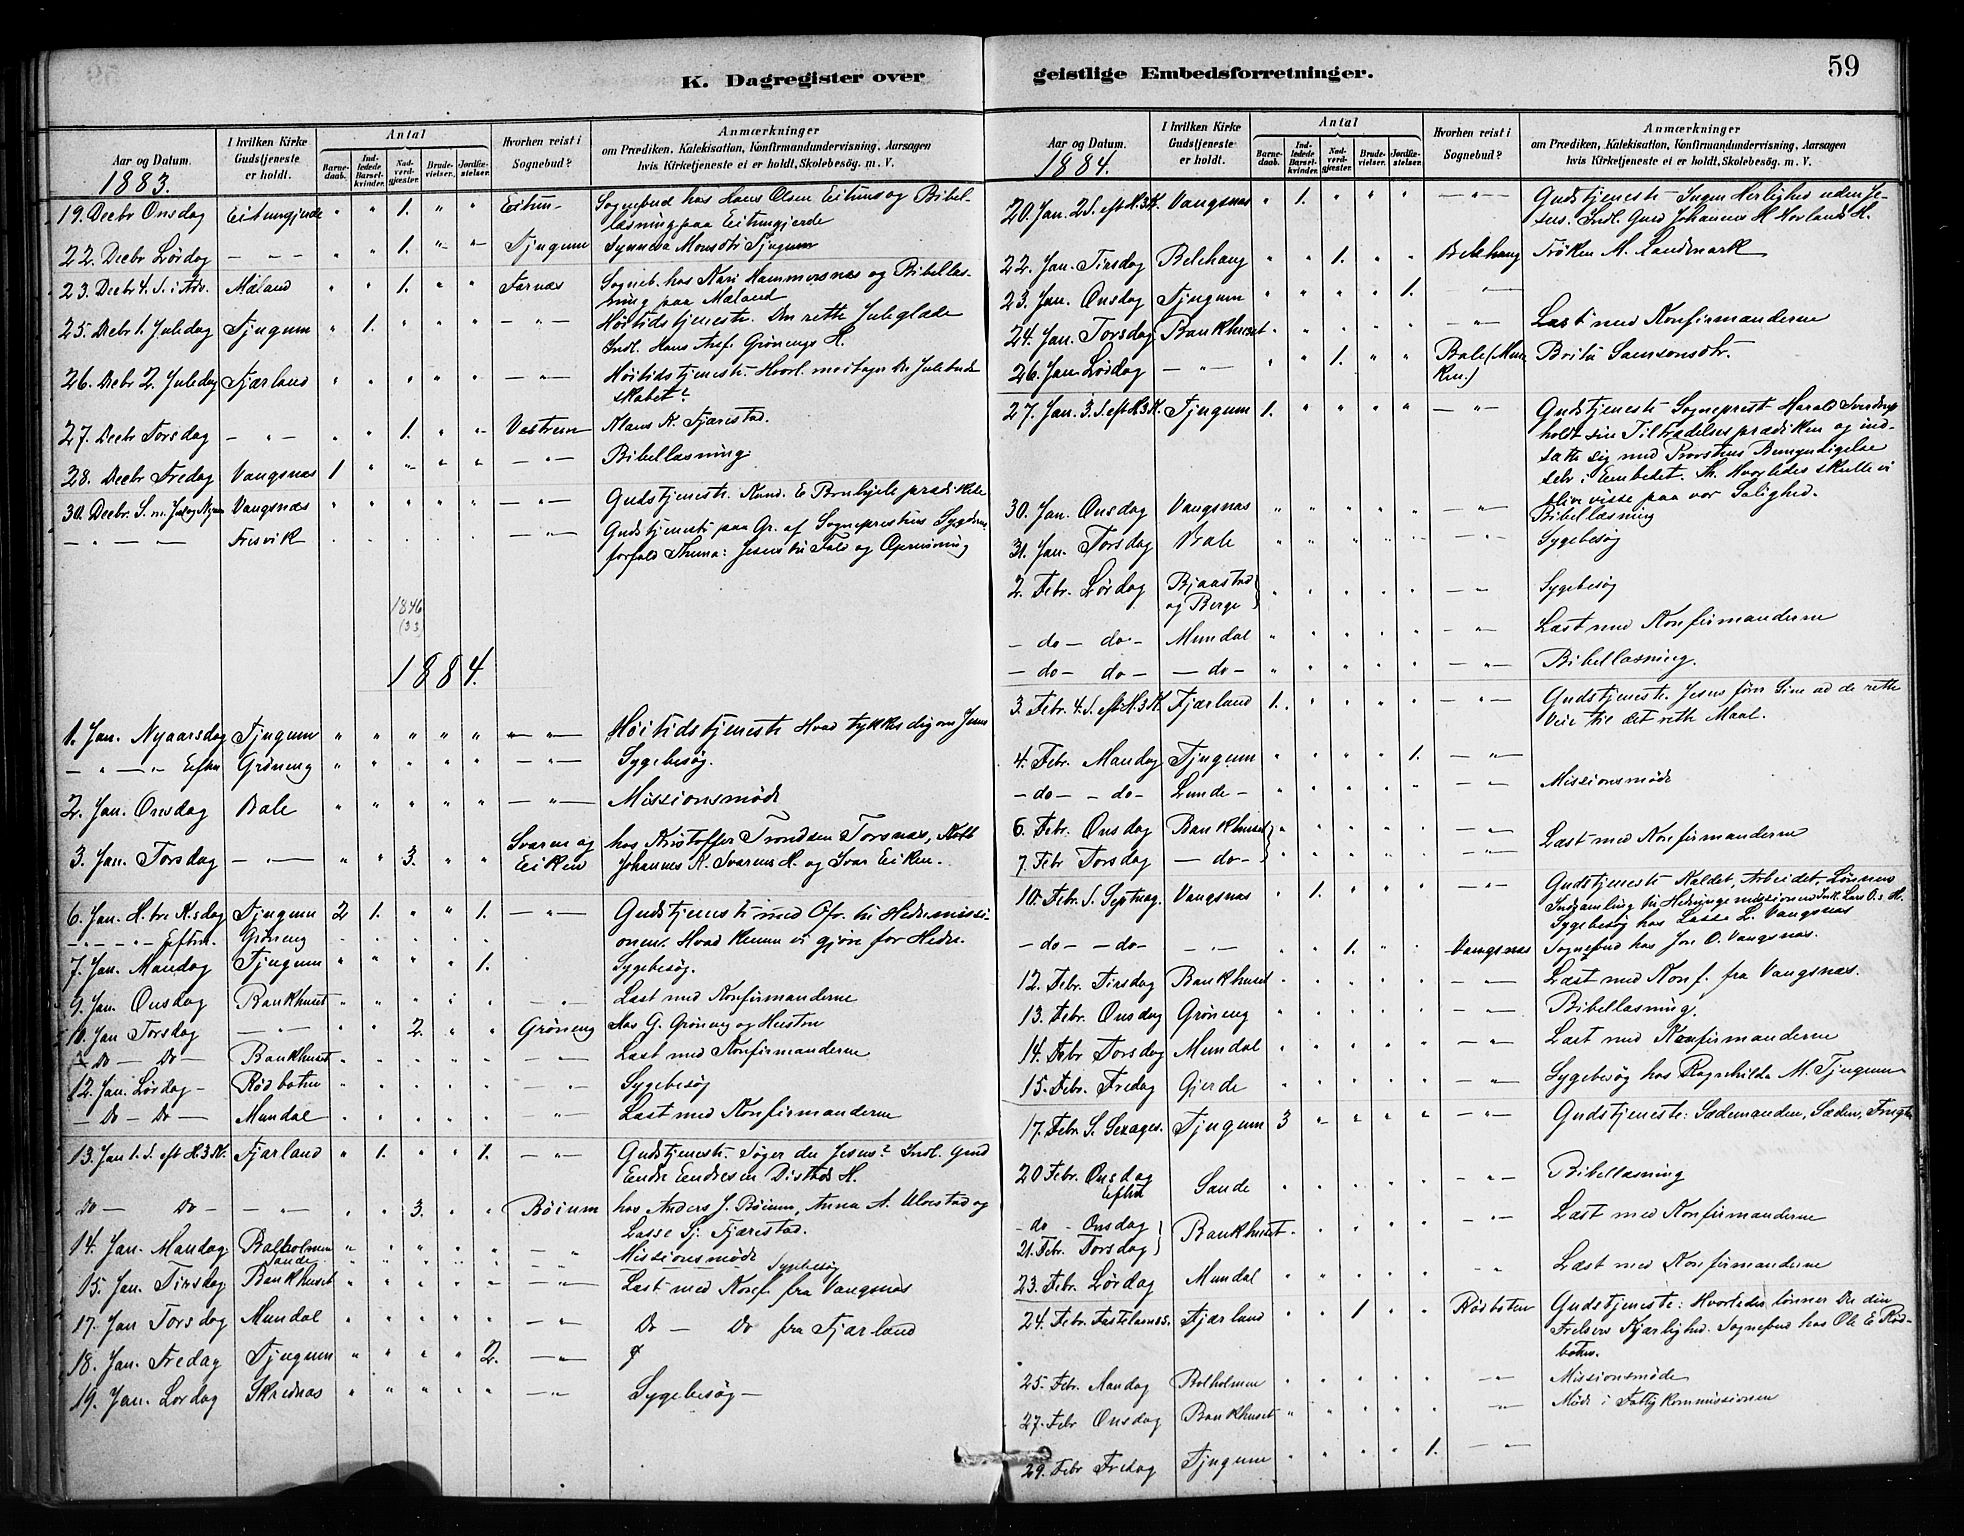 59
K. Dagregister over geistlige Embedsforretninger.
Aar og Datum.
1883.
I hvilken Kirke Gudstjeneste er holdt.
Antal
Barnedaab.
Indledede Barselkvinder.
Nadverdgjester.
Brudevielser.
Jordfæstelser.
Hvorhen reist i Sognebud?
Anmærkninger
om Prædiken, Katekisation, Konfirmandundervisning, Aarsagen
hvis Kirketjeneste ei er holdt, Skolebesög. m. V.
19. Decbr Onsdag Eitungjerde " " 1. " " Eitun- Sognebud hos Hans Olsen Eituns og Bibel-
læsning paa Eitungjerde
22. Decbr Lördag — " — " 1. " " Tjugum Synneva Monsdtr Tjugum
23. Decbr 4. S. i Adv. Mæland " " 1. " " Farnæs Sogneb. hos Kari Hammersnæs og Bibellæs-
ning paa Mæland
25. Decbr 1. Juledag Tjugum " 1. " " " — " — Høitidstjeneste. Den rette Juleglæde
Indl. Hans Grönengs H.
26. Decbr 2. Juledag Fjærland " " " " " — " — Høitidstjeneste. Hvorl. modtages De Julebud-
skabet?
27. Decbr Torsdag — " — " " 1. " " Vestrem Klaus K. Fjærestad.
28. Decbr Fredag Vangsnæs 1 " " " " — " — Bibellæsning
30. Decbr. S. m. Jul og Nyaar Vangsnæs " " " " " — " — Gudstjeneste. Kand. E. prædikede
— " — " — Fresvik — " — Gudstjeneste paa Gr. af Sogneprestens Sygdoms-
forfald Thema: Jesus til Fald og Opreisning
1846
(33)
1884.
1. Jan. Nyaarsdag Tjugum " " " " " — " — Høitidstjeneste Hvad tykkes dig om Jesus
— " — " Eftm Gröneng " " " " " — " — Sygebesøg.
2. Jan. Onsdag Bale " " " " " — " — Missionsmöde
3. Jan. Torsdag — " — " " 3. " " Sværen og Eiken hos Kristoffer Trondsen Torsnæs,
Johannes K. Sværens H. og Ivar Eiken.
6. Jan. H. tre K.dag Tjugum 2 1. " " 1. — " — Gudstjeneste med Ofr. til Hedemissi-
— " — " — Eftm. Gröneng onen. Hvad kunne vi gjöre for Heden.
7. Jan. Mandag Tjugum " " " " 1. Sygebesög.
9. Jan. Onsdag Bankhuset " " " " " — " — Læst med Konfirmanderne
10. Jan Torsdag — " — " " 2. " " Gröneng Hos G. Gröneng og Hustru
— Do — Do — Bankhuset " " " " " — " — Læst med Konfirmanderne
12. Jan. Lördag — Rödbotn " " " " " — " — Sygebesög
— Do — Do — Mundal " " " " " — " — Læst med Konfirmanderne
13. Jan 1. S. eft H3K. Fjærland " 1. " " 1. — " — Gudstjeneste. Søger du Jesus? Indl. Gmd
Endre Endresen Distads H.
Do — Do — — " — " " 3. " " Böium hos Anders J. Böium, Anna A. Ulvestad og
Lasse Sj. Fjærestad.
14. Jan. Mandag Balholmen " " " " " — " Missionsmöde
Sande Sygebesög
15. Jan. Tirsdag Bankhuset " " " " " — " — Læst med Konf. fra Vangsnæs
17. Jan Torsdag Mundal " " " " " — " Do — Do fra Fjærland
18. Jan. Fredag Tjugum " " " " 2. — " —
19. Jan. Lördag Skrednæs " " " " " — " — Sygebesög —
Aar og Datum.
1884.
I hvilken Kirke Gudstjeneste er holdt.
Antal
Barnedaab.
Indledede Barselkvinder.
Nadverdgjester.
Brudevielser.
Jordfæstelser.
Hvorhen reist i Sognebud?
Anmærkninger
om Prædiken, Katekisation, Konfirmandundervisning, Aarsagen
hvis Kirketjeneste ei er holdt, Skolebesög. m. V.
20. Jan. 2 S. eft H.3K. Vangsnæs " 1. " " " — " — Gudstjeneste Ingen Herlighed uden Je-
sus. Indl. Gmd Johannes H. Norlands H.
22. Jan. Tirsdag Belehaug " " 1. " " Belehaug Fröken M. Landmark
23. Jan. Onsdag Tjugum " " " " 1. — " —
24. Jan. Torsdag Bankhuset " " " " " — " — Læst med Konfirmanderne
26. Jan. Lördag — " — " " 1. " " Bale (Munken.) Brita Samsonsdtr.
27. Jan. 3. S. eft H3K. Tjugum 1. " " " " — " — Gudstjeneste Sogneprest Harald Sverdrup
holdt sin Tiltrædelsesprædiken og ind-
satte sig med Provstens Bemyndigelse
selv i Embedet. Th. Hvorledes skulle vi
blive visse paa vor Salighed.
30. Jan. Onsdag Vangsnæs " " " " " — " — Bibellæsning
31. Jan. Torsdag Bale " " " " " — " — Sygebesög
2. Febr. Lördag Bjaastad og Berge " " " " " — " — Sygebesög
— do — do — Mundal " " " " " — " — Læst med Konfirmanderne
— do — do — — do — " " " " " — " — Bibellæsning.
3. Febr. 4. S. eft H.3K. Fjærland 1. " " " " — " — Gudstjeneste. Jesus fører Sine ad de rette
Veie til det rette Maal.
4. Febr. Mandag Tjugum " " " " 1. — " —
— do — — do — Lunde — " " " " " — " — Missionsmöde
6. Febr. Onsdag Bankhuset " " " " " — " —
7. Febr Torsdag — do — — " — Læst med Konfirmanderne
10. Febr. S. Septuag. Vangsnæs " 1. " " " — " — Gudstjeneste Kaldet, Arbeidet, Lönnen
Indsamling til Hedningemissionen Ink. Lars O.s H.
Sygebesög hos Lasse L. Vangsnæs
— do — — do — — " — " " 1. " " Vangsnæs Sognebud hos Jon O. Vangsnæs.
12. Febr. Tirsdag Bankhuset " " " " " — " — Læst med Konf. fra Vangsnæs.
13. Febr. Onsdag Gröneng " " " " " — " — Bibellæsning.
14. Febr Torsdag Mundal " " " " " — " — Læst med Konfirmanderne
15. Febr. Fredag Gjerde " " " " " — " — Sygebesög hos Ragnhilda M. Tjugum
17. Febr. S. Sexages. Tjugum 3 " " " " — " — Gudstjeneste: Sædemanden, Sæden, Frugten
20 Febr. Onsdag Eftm Sande " " " " " — " — Bibellæsning
— do — Onsdag
21. Febr. Torsdag Bankhuset " " " " " — " — Læst med Konfirmanderne
23. Febr. Lördag Mundal " " " " " Læst med Konfirmanderne
24. Febr. Fastelavns. Fjærland " " 1 " " Rödbotn Gudstjeneste: Hvorledes lönner Du din
Frelsers Kjærlighed. Sognebud hos Ole E Röd-
botn.
25. Febr. Mandag Balholmen " " " " " — " — Missionsmöde
27. Febr Onsdag Bankhuset " " " " " " — Möde i Fattigkommissionen
29. Febr Fredag Tjugum " " " " 1. — " —